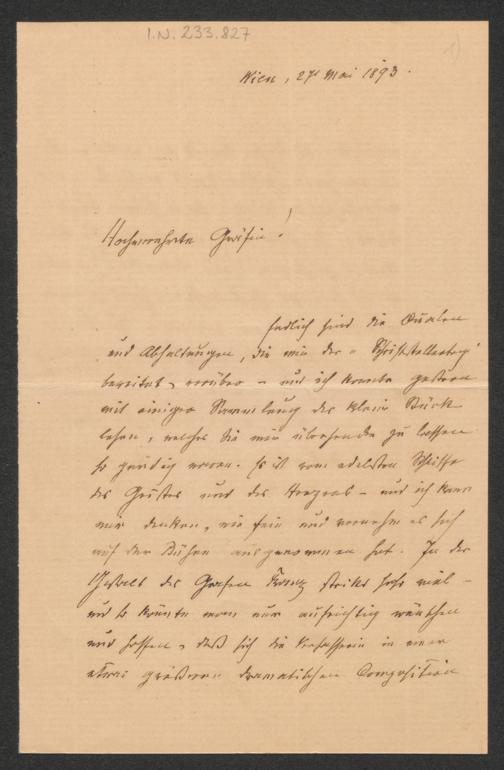 I.N. 233.827
1)
Wien, 27t Mai 1893.
Hochverehrte Gräfin!
Endlich sind die Qualen
und Abhaltungen, die mir der „Schriftstellertag"
bereitet, vorüber – und ich konnte gestern
mit einiger Sammlung das kleine Stück
lesen, welches Sie mir übersenden zu lassen
so gnädig waren. Es ist vom edelsten Schliffe
des Geistes und des Herzens – und ich kann
mir denken, wie fein und vornehm es sich
auf der Bühne ausgenommen hat. In der
Gestalt des Grafen steckt sehr viel –
und so könnte man nur aufrichtig wünschen
und hoffen, daß sich die Verfasserin in einer
etwas größeren dramatischen Composition